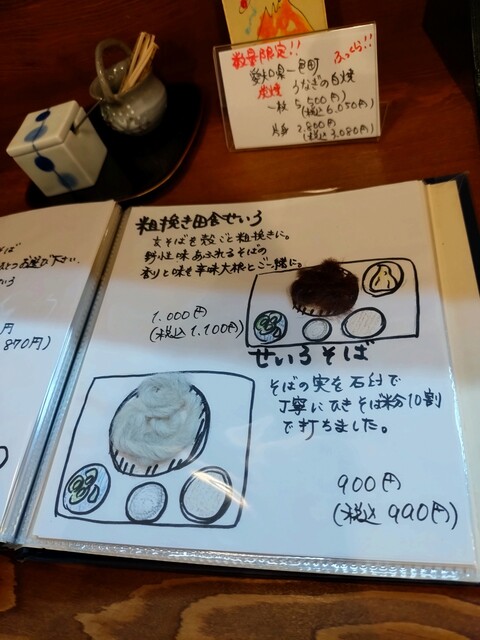 数量限定!!
ふっくら!!
愛知県一色町
炭焼 うなぎの白焼
一枚 5,500円
(税込6,050円)
半身 2,800円
(税込3,080円)
粗挽き田舎せいろ
玄そばを殻ごと粗挽きに。
野性味あふれるそばの
香りと味を辛味大根とご一緒に。
1,000円
(税込1,100円)
せいろそば
そばの実を石臼で
丁寧にひきそば粉10割
で打ちました。
900円
(税込990円)
そば
下さい。
円
870円)